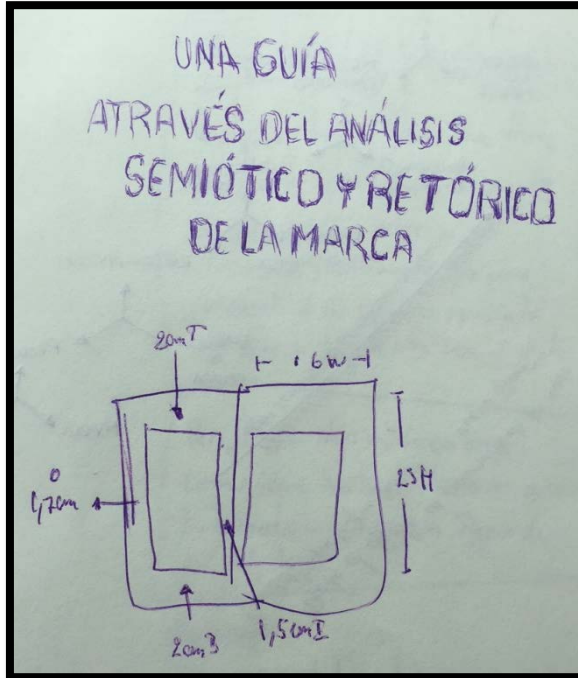 UNA GUÍA
ATRAVÉS DEL ANÁLISIS
SEMIÓTICO Y RETÓRICO
DE LA MARCA
2cm T
16W
O
1,7cm
23H
2cm B
1,5cm I